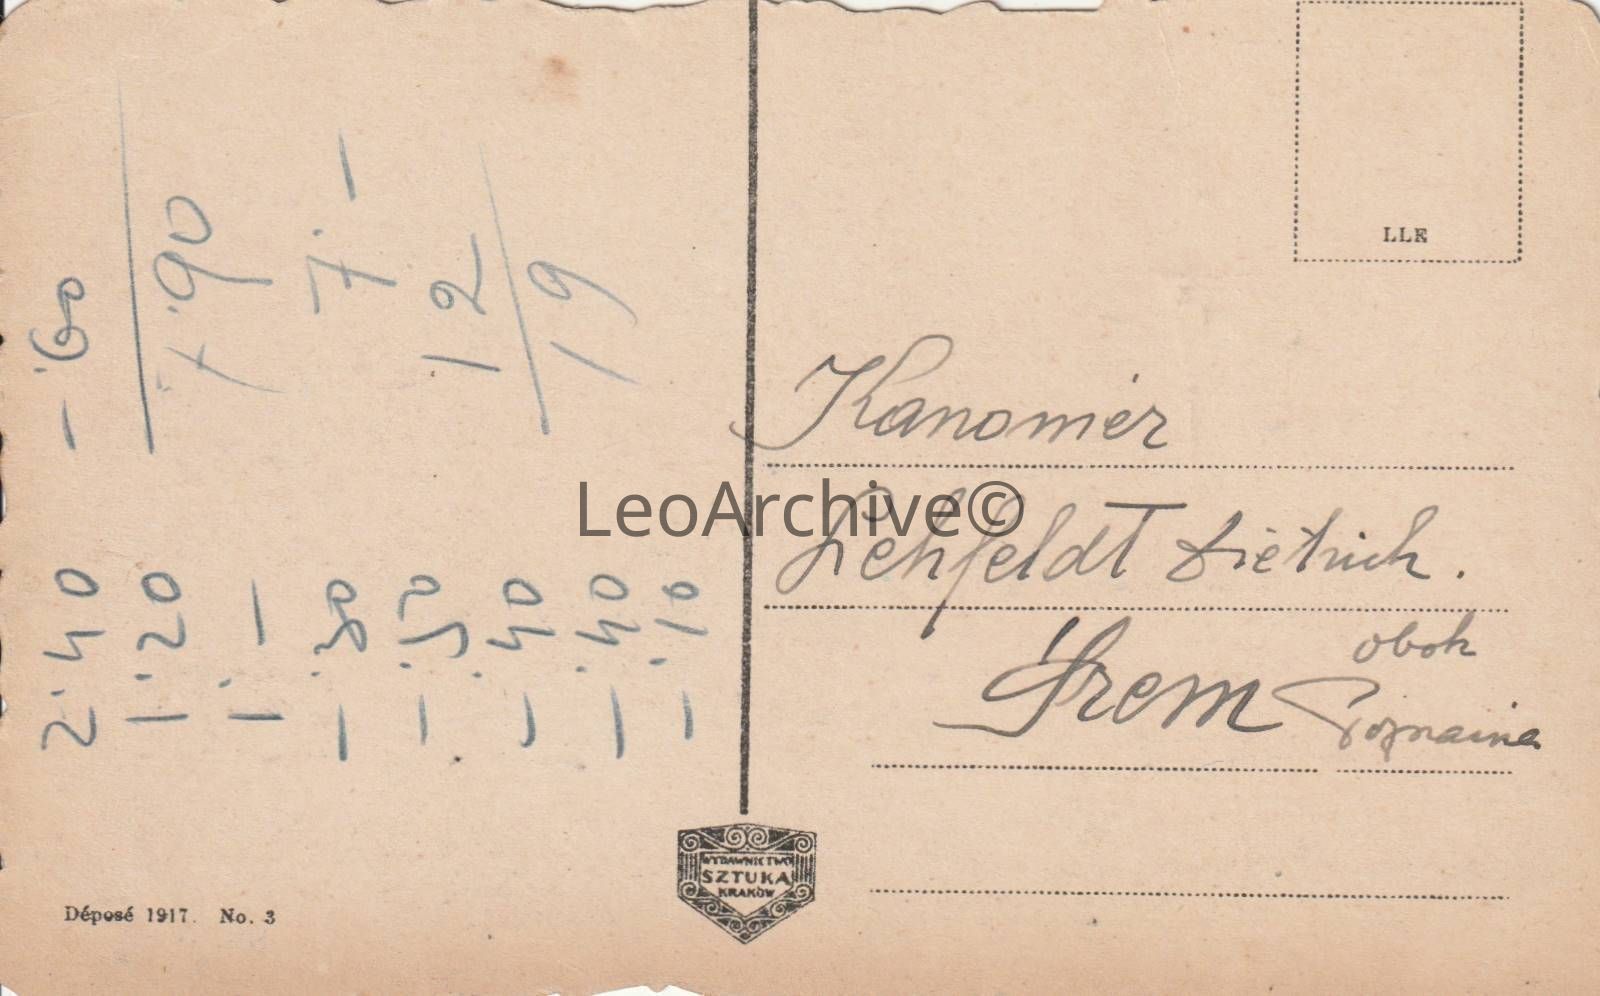 2.40
1.20
1.-
-.80
-.50
1.40
1.40
1.10
-.60
7.90
7.-
12
19
LLE
Kanonier
Lehfeldt Dietrich.
Śrem obok
Poznania
LeoArchive©
WYDAWNICTWO
SZTUKA
KRAKÓW
Déposé 1917. No. 3